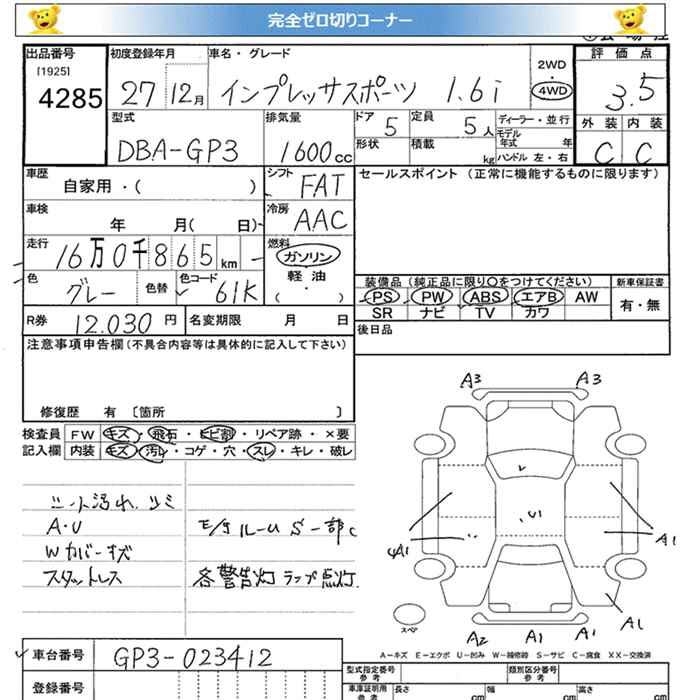 完全ゼロ切りコーナー
出品番号 初度登録年月 車名・グレード 2WD 評価点
[1925]
4285 27 12月 インプレッサスポーツ 1.6i ・ 4WD 3.5
型式 排気量 ドア 5 定員 5人 ディーラー・並行 外装 内装
DBA-GP3 1600cc 形状 積載 kg モデル年式 年 ハンドル 左・右 C C
車歴 シフト FAT セールスポイント (正常に機能するものに限ります)
自家用・( )
車検 冷房 AAC
年 月( 日)
走行 燃料
16万0千865km ガソリン
軽油
色 グレー 色替 色コード 61K ( ) 装備品 (純正品に限り〇をつけてください) 新車保証書
PS PW ABS エアB AW 有・無
R券 12.030円 名変期限 月 日 SR ナビ TV カワ
注意事項申告欄(不具合内容等は具体的に記入して下さい) 後日品
修復歴 有 〔箇所 〕
検査員 FW キズ・飛石・ヒビ割・リペア跡・×要
記入欄 内装 キズ・汚れ・コゲ・穴・スレ・キレ・破レ
A3 A3
シート汚れ、シミ
A・U モ/ルーム S一部C
Wカバーキズ
スタットレス 各警告灯ランプ点灯
U1
A1 A1
A1
スペア
A2 A1 A1
A-キズ E-エクボ U-凹み W-補修跡 S-サビ C-腐食 XX-交換済
車台番号 GP3-023412
登録番号
型式指定番号 参考 類別区分番号 参考
車庫証明用 参考 長さ cm 幅 cm 高さ cm